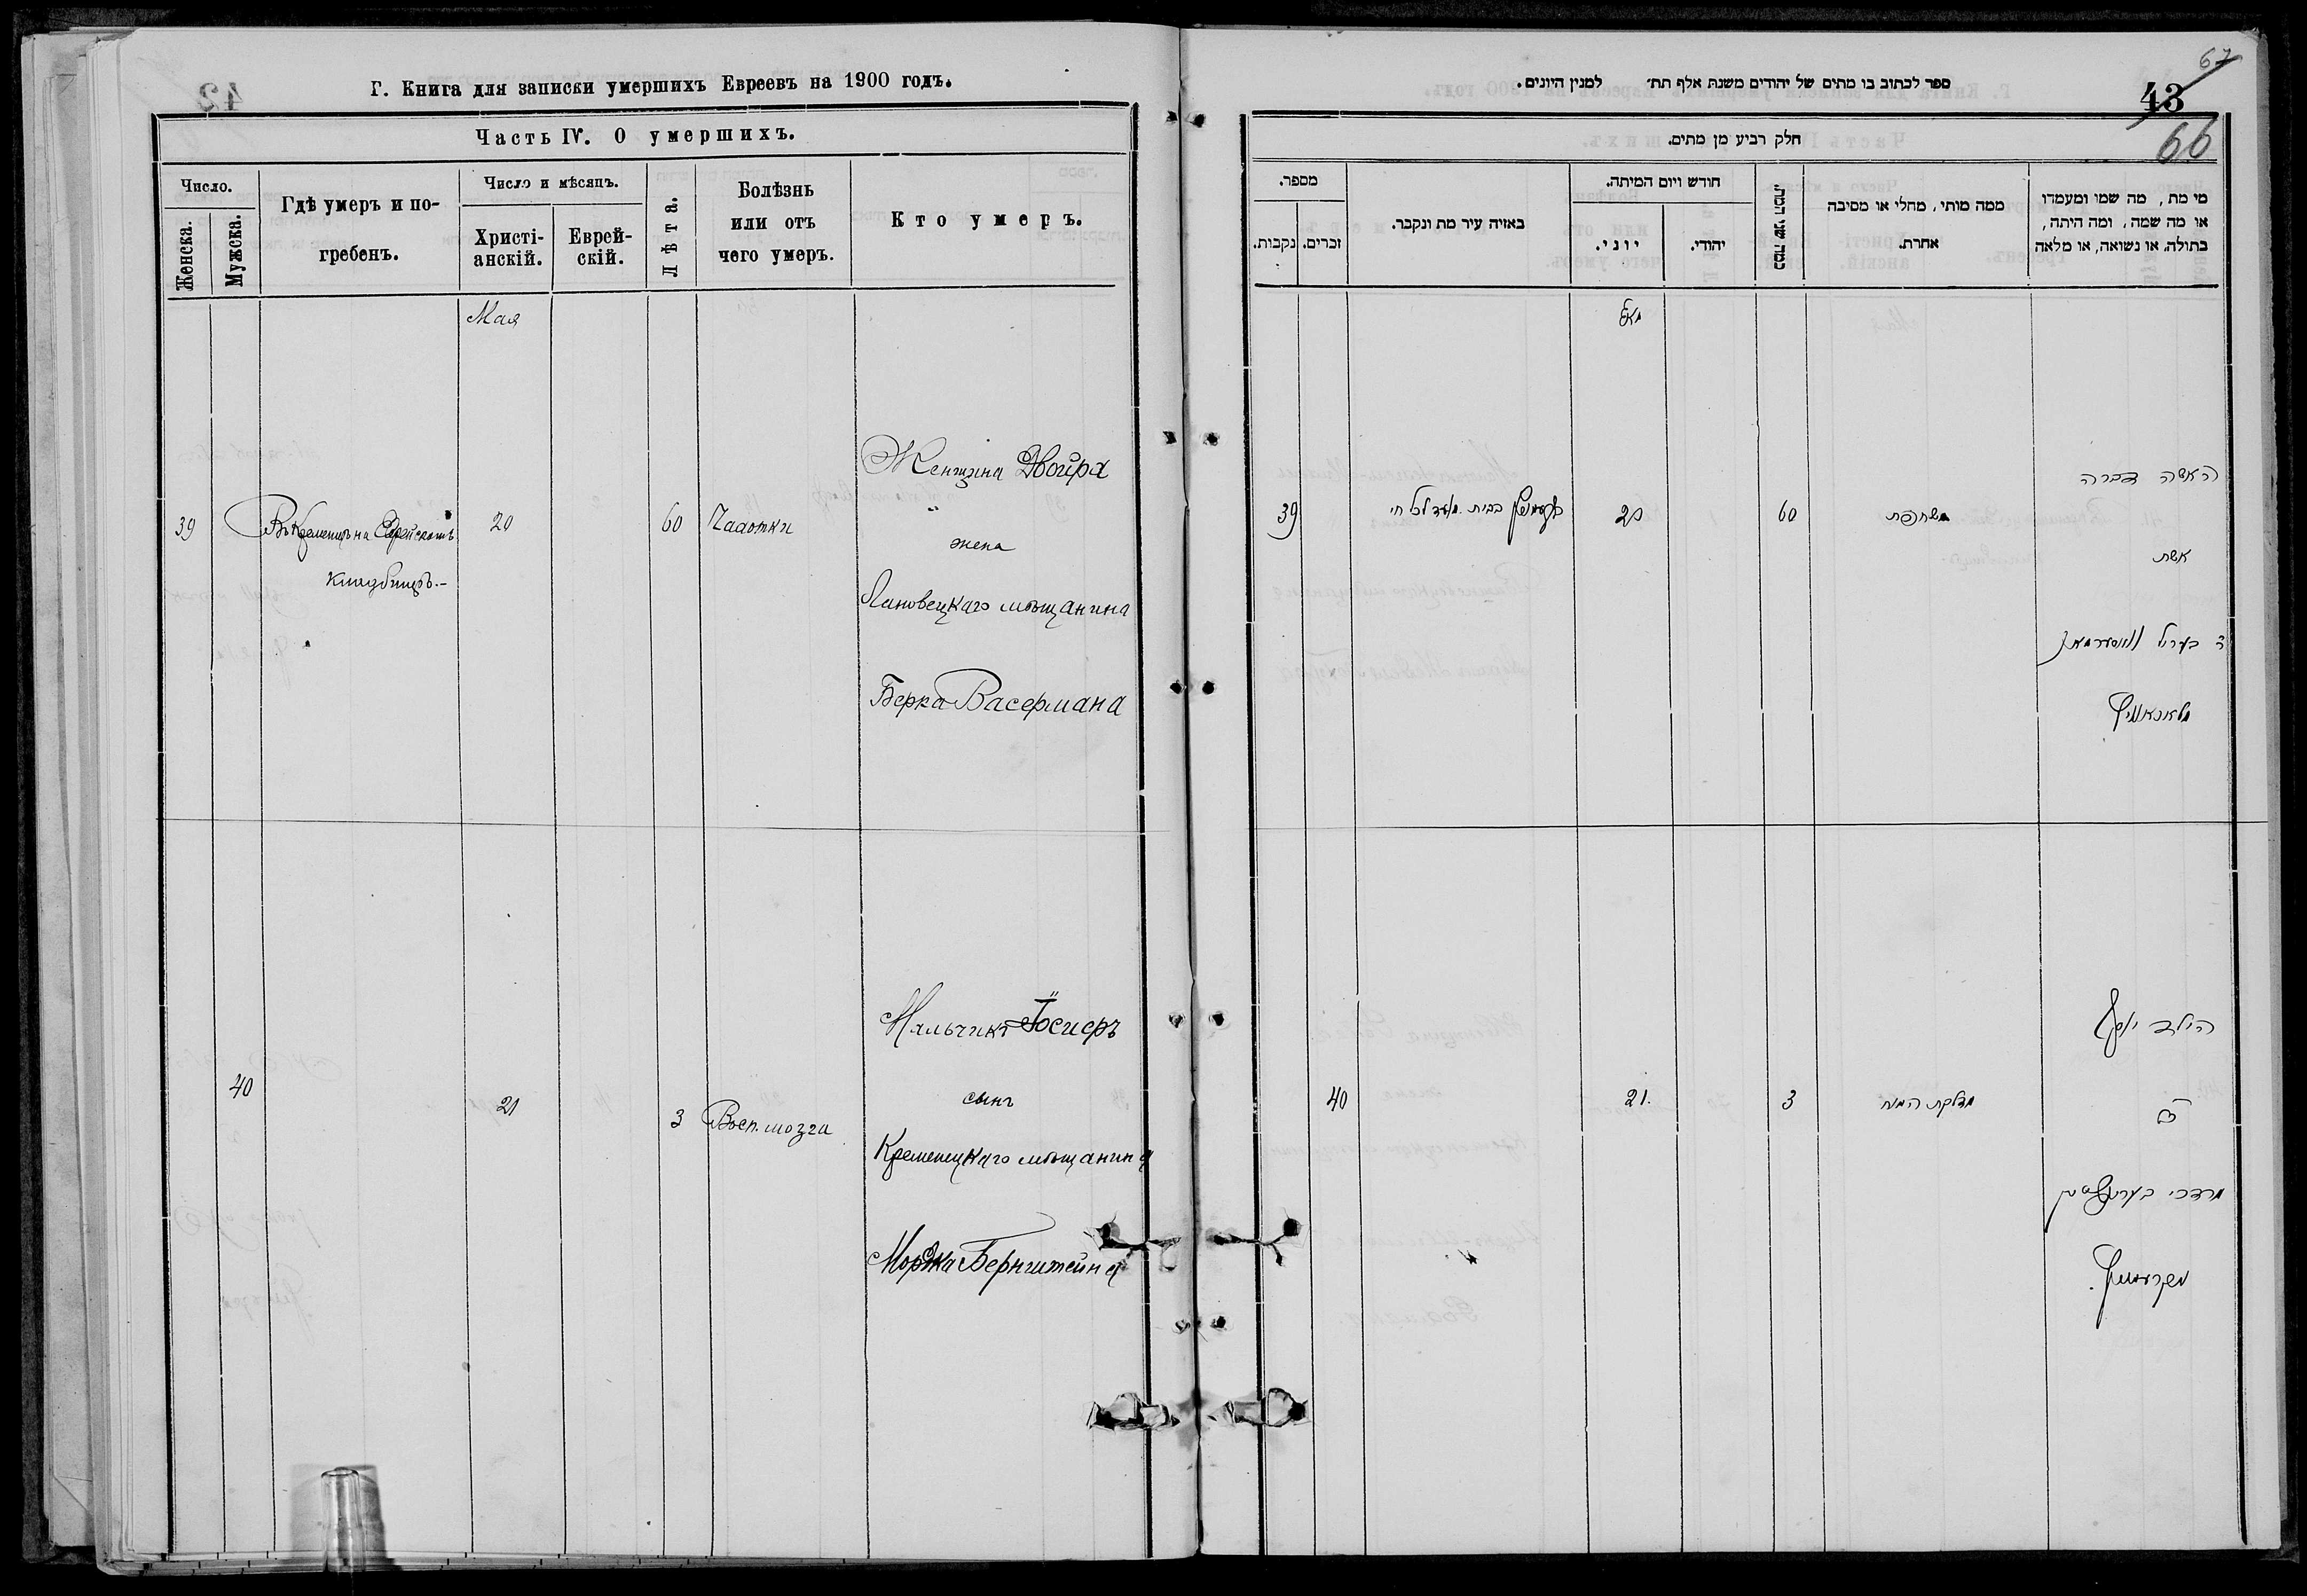 Г. Книга для записки умершихъ Евреевъ на 1900 годъ.
Часть IV. О умершихъ.
Число.
Женска.
Мужска.
Гдѣ умеръ и по-
гребенъ.
Число и мѣсяцъ.
Христі-
анскій.
Еврей-
скій.
Лѣта.
Болѣзнь
или отъ
чего умеръ.
Кто умеръ.
Мая
39
Въ Кременцѣ на Еврейскомъ
кладбищѣ.-
20
60
Чахотки
Женщина Двойра
жена
Лановецкаго мѣщанина
Берка Васермана
40
21
3
Восп. мозга
Мальчикъ Iосиеръ
сынъ
Кременецкаго мѣщанина
Мордка Бернштейна
ספר לכתוב בו מתים של יהודים משנת אלף תת׳ למנין היונים.
67
43
66
חלק רביע מן מתים.
מספר.
נקבות.
זכרים.
באיזה עיר מת ונקבר.
חודש ויום המיתה.
יוני.
יהודי.
כמה שני המת.
ממה מותי, מחלי או מסיבה
אחרת.
מי מת, מה שמו ומעמדו
או מה שמה, ומה היתה,
בתולה. או נשואה, או מלאה
מאי
39
בבית מועד לכל חי
20
60
משחפת
האשה דברה
אשת
ר בעריל וואסערמאן
40
21.
3
מדלקת המוח
הילד יוסף
בן
מרדכי בערנשטיין